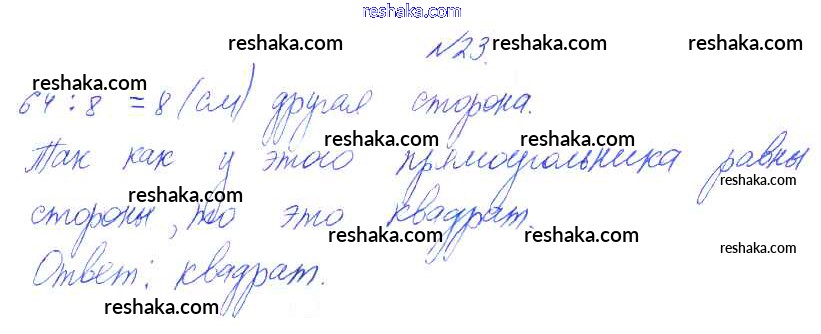 reshaka.com
reshaka.com №23. reshaka.com reshaka.com
reshaka.com
64 : 8 = 8 (см) другая сторона.
reshaka.com reshaka.com
Так как у этого прямоугольника равны
reshaka.com reshaka.com
стороны, то это квадрат.
reshaka.com reshaka.com reshaka.com
Ответ: квадрат.
reshaka.com